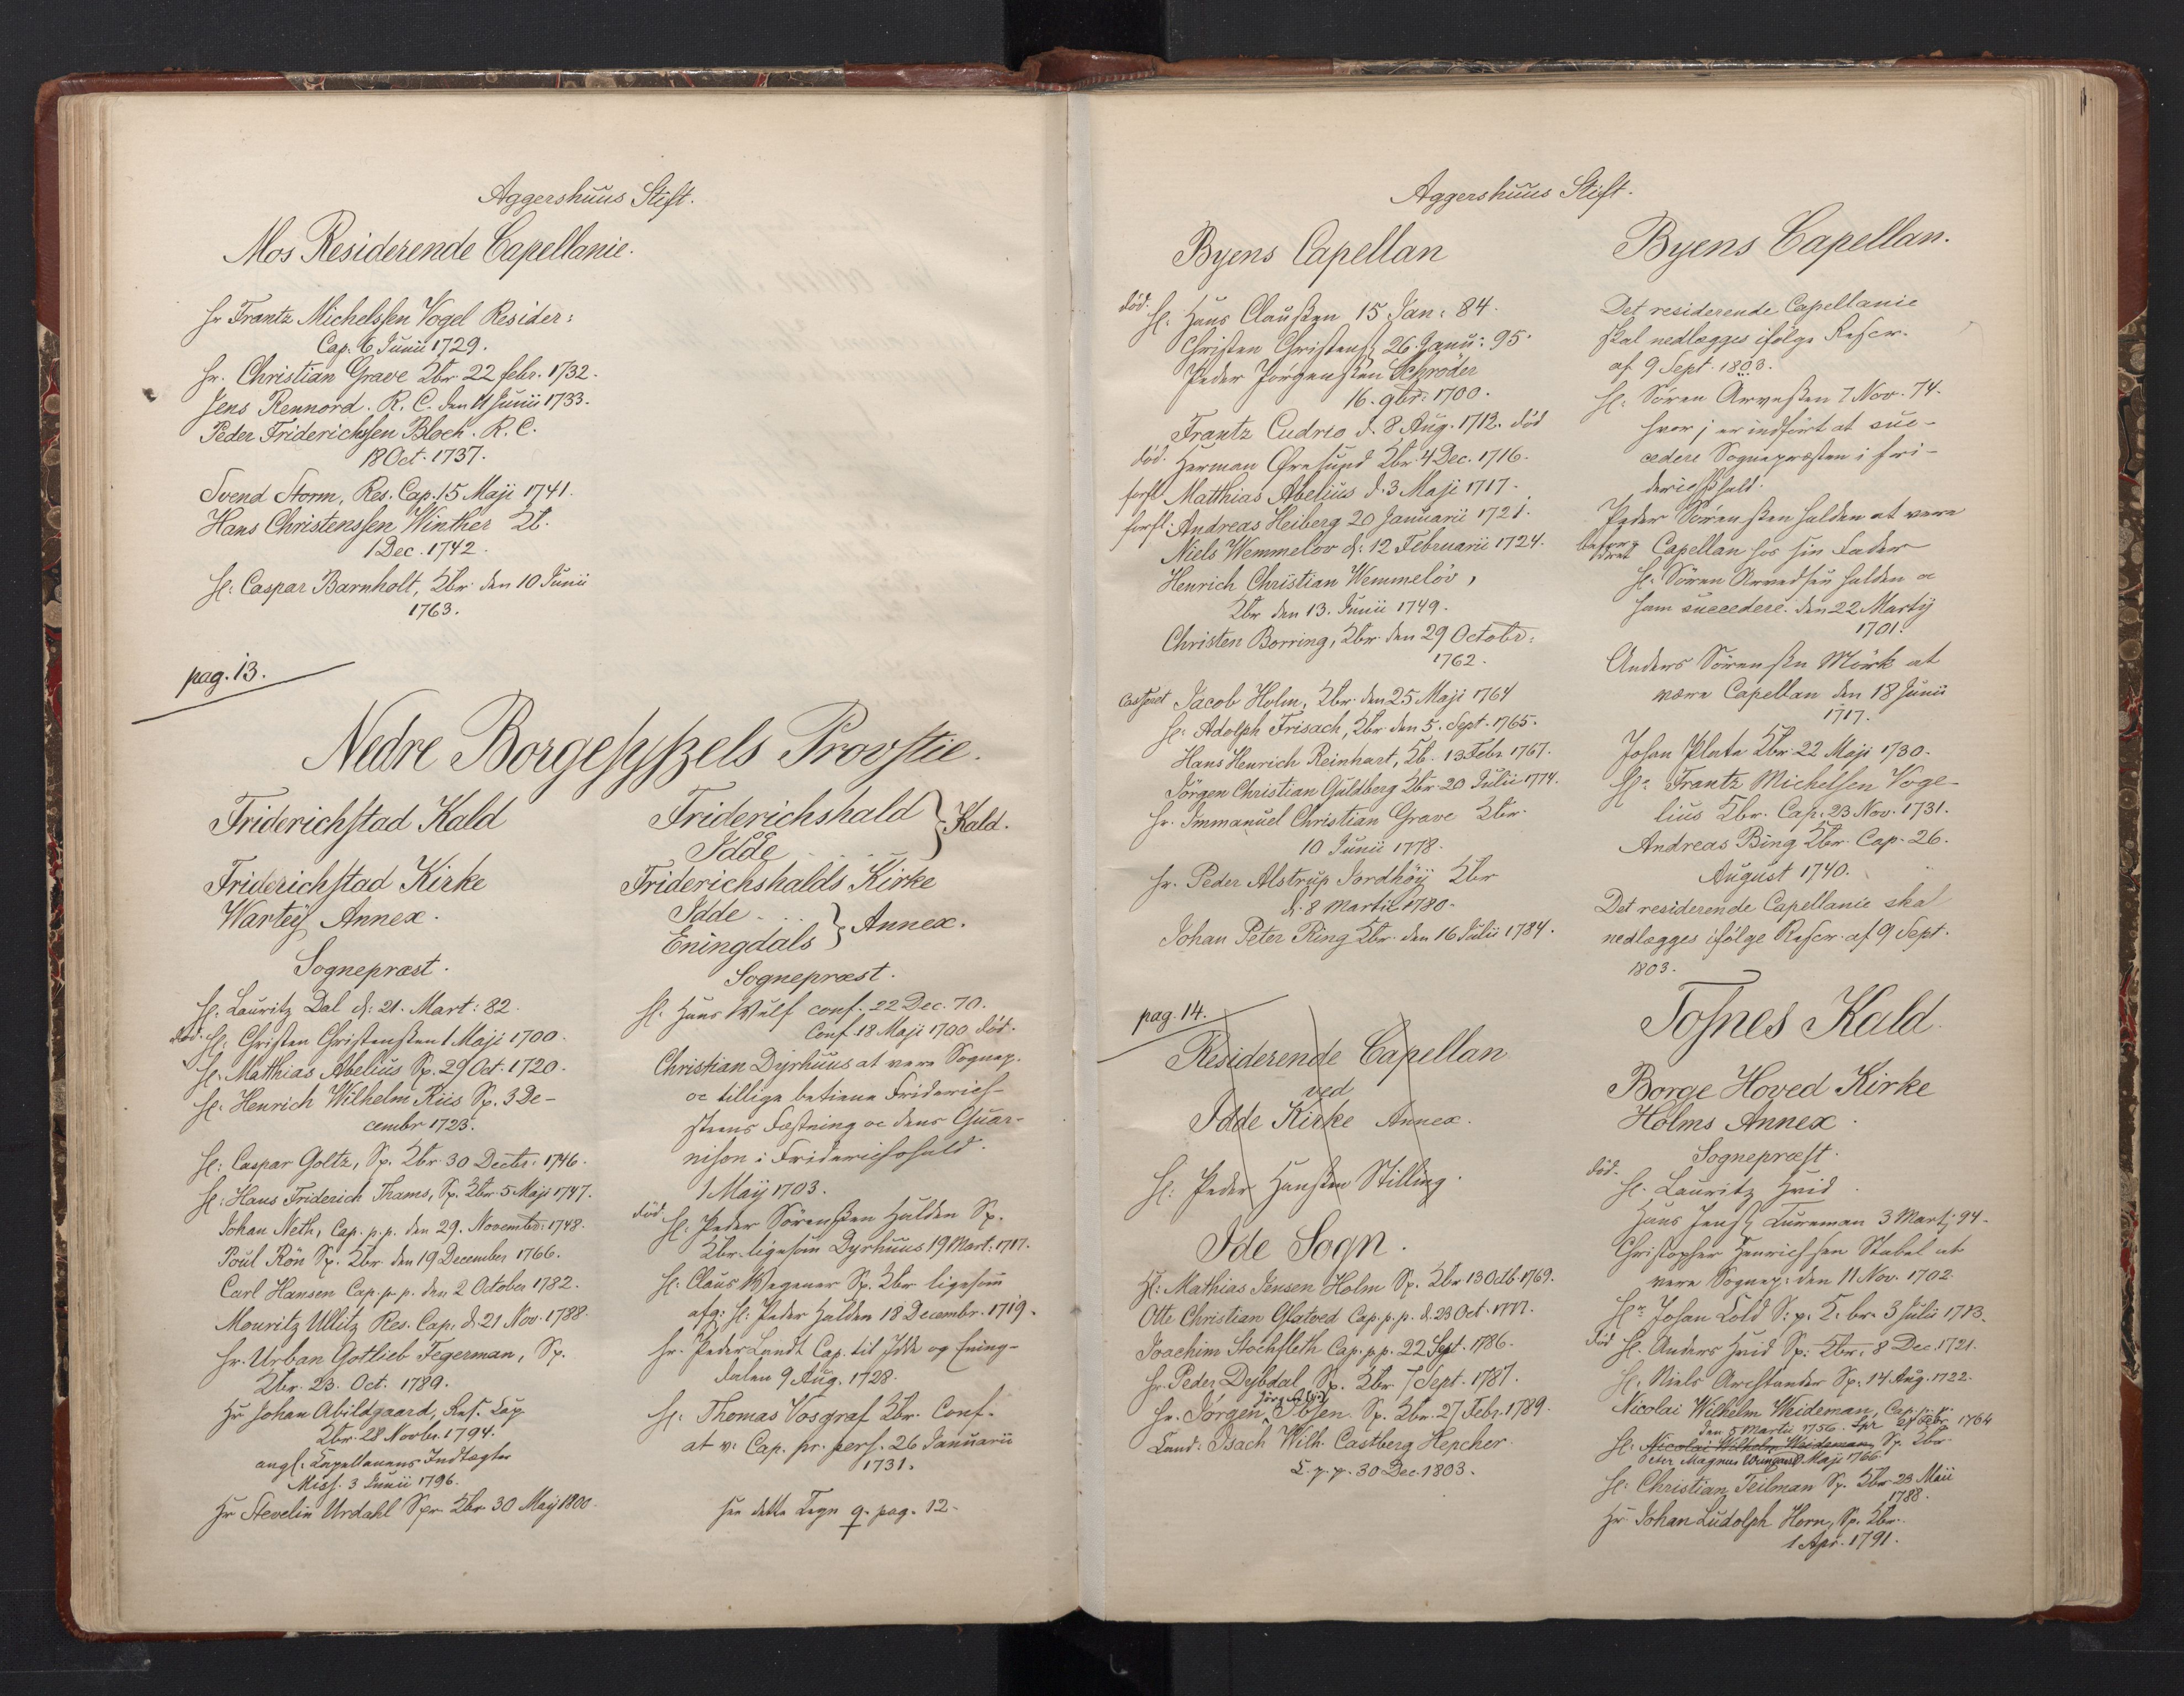 Aggershuus Stift.
Mos Residerende Capellanie.
Hr Frantz Michelssen Vogel Resider:
Cap. 6 Junii 1729.
Hr. Christian Grave Kbr. 22 febr. 1732.
Jens Rennord. R. C. den 11 Junii 1733.
Peder Friderichssen Bloch. R. C.
18 Oct. 1737.
Svend Storm, Res. Cap. 15 Maji 1741.
Hans Christenssen Winther Kb.
1 Dec. 1742.
H: Caspar Barnholt, Kbr. den 10 Junii
1763.
pag. 13.
Nedre Borgesyszels Provstie.
Friderichstad Kald
Friderichstad Kirke
Wartey Annex.
Sognepræst.
H: Lauritz Dal d: 21. Mart: 82.
död. H: Christen Christensen 1 Maji 1700.
H: Matthias Abelius Sp. 29 Oct. 1720.
H: Henrich Wilhelm Riis Sp. 3 De-
cembr 1723.
H: Caspar Goltz, Sp. Kbr 30 Decbr: 1746.
H: Hans Friderich Thams, Sp. Kbr 5 Maji 1747.
Johan Neth, Cap. p. p. den 29. Novembr: 1748.
Poul Rön Sp. Kbr den 19 December 1766.
Carl Hansen Cap. p. p. den 2 October 1782.
Mouritz Ullitz Res. Cap. d. 21 Nov. 1788.
Hr. Urban Gotlieb Fegerman, Sp.
Kbr. 23. Oct. 1789.
Hr Johan Abildgaard, Res. Cap
Kbr. 28 Novbr. 1794.
ang: Capellanens Indtægter
Miss. 3 Junii 1796.
Hr Stevelin Urdahl Spr. Kbr. 30 Maij 1800.
Friderichshald } Kald.
Idde
Friderichshalds Kirke
Idde } Annex.
Eningdals
Sognepræst.
H. Hans Wulf conf. 22 Dec. 70.
Conf. 18 Maji 1700, död.
Christian Dyrhuus at være Sognep.
oc tillige betiene Friderich-
steens Fæstning oc dens Guar-
nison i Friderichshald.
1 Maij 1703.
död. H: Peder Sörensen Halden Sp.
Kbr. ligesom Dyrhuus 19 Mart: 1717.
H: Claus Wegener Sp. Kbr ligesom
afg: H: Peder Halden 18 Decembr. 1719.
Hr. Peder Lundt Cap. til Idde og Ening-
dalen 9 Aug. 1728.
H: Thomas Vosgraf Kbr. Conf.
at v: Cap. pr. pers. 26 Januarii
1731.
see dette Tegn q. pag. 12.
Aggershuus Stift.
Byens Capellan
död. H. Hans Claussen 15 Jan: 84.
Christen Christens. 26. Janu: 95.
Peder Jörgensen Schröder
16. 9br: 1700.
Frantz Cudrio d. 8 Aug. 1712. död
död. Herman Öresund Kbr. 4 Dec. 1716.
forfl. Matthias Abelius d. 3 Maji 1717.
forfl. Andreas Heiberg 20 Januarii 1721.
Niels Wemmelov d: 12 Februarii 1724.
Henrich Christian Wemmelöv,
Kbr den 13. Junii 1749.
Christen Borring, Kbr. den 29 Octobr:
1762.
casseret Jacob Holm, Kbr. den 25 Maji 1764
H: Adolph Frisach, Kbr den 5. Sept. 1765.
Hans Henrich Reinhart, Kb. 13 Febr. 1767.
Jörgen Christian Guldberg Kbr 20 Julii 1774.
Hr. Immanuel Christian Grave Kbr
10 Junii 1778.
Hr. Peder Alstrup Jordhöy Kbr
d. 8 Martii 1780.
Johan Peter Ring Kbr. den 16 Julii 1784.
pag. 14.
Residerende Capellan
ved
Idde Kirke Annex.
H: Peder Hansen Stilling.
Ide Sogn.
H: Mathias Jensen Holm Sp. Kbr 13 Octb. 1769.
Otte Christian Glatved Cap. p. p. d. 23 Oct. 1777.
Joachim Stochfleth Cap. p. p. 22 Sept. 1786.
Hr. Peder Dybdal Sp. Kbr. 7 Sept. 1787.
Hr. Jörgen Ibsen. Sp. Kbr. 27 Febr. 1789.
Cand: Isach Wilh. Castberg Hepcher
C. p. p. 30 Dec. 1803.
Byens Capellan.
Det residerende Capellanie
skal nedlægges ifölge Rescr.
af 9 Sept. 1803.
H: Sören Arvesen 7 Nov. 74.
hvor j er indfört at suc-
cedere Sognepræsten i Fri-
derichshald.
Peder Sörensen Halden at være
Capellan hos sin Fader
H: Sören Arvedsen Halden oc
ham succedere. den 22 Martij
1701.
Anders Sörensen Mörk at
være Capellan den 18 Junii
1717.
Johan Plate Kbr. 22 Maji 1730.
Hr. Frantz Michelsen Voge-
lius Kbr. Cap. 23 Nov. 1731.
Andreas Bing Kbr. Cap. 26.
August 1740.
Det residerende Capellanie skal
nedlægges ifölge Rescr. af 9 Sept.
1803.
Tosnes Kald
Borge Hoved Kirke
Holms Annex.
Sognepræst.
död. H. Lauritz Hvid
Hans Jens. Lureman 3 Mart: 94.
Christopher Henrichsen Stabel at
være Sognep: den 11 Nov. 1702.
Hr. Johan Cold S: p. K: br. 3 Julii 1713.
död H. Anders Hvid Sp: Kbr: 8 Dec. 1721.
H. Niels Arestander Sp: 14 Aug. 1722.
Nicolai Wilhelm Weideman, Cap. p. p.
den 5 Martii 1756. Spr 24 Febr 1764
H: Nicolai Wilhelm Weideman Sp. Kbr
Peter Magnus Wungard Maji 1766.
H: Christian Teilman Sp. Kbr 23 Maii
1788.
Hr Johan Ludolph Horn, Sp. Kbr.
1 Apr. 1791.